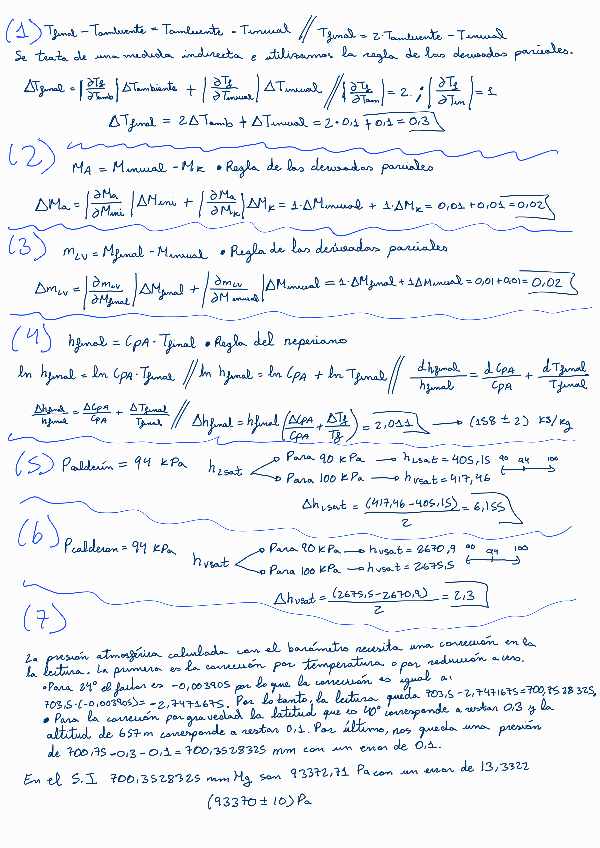 (1) Tfinal - Tambiente = Tambiente - Tinicial // Tfinal = 2·Tambiente - Tinicial
Se trata de una medida indirecta e utilizamos la regla de las derivadas parciales.
ΔTfinal = |∂Tf/∂Tamb| ΔTambiente + |∂Tf/∂Tinicial| ΔTinicial // |∂Tf/∂Tam| = 2. ; |∂Tf/∂Tin| = 1
ΔTfinal = 2ΔTamb + ΔTinicial = 2·0,1 + 0,1 = 0,3
(2) MA = Minicial - MK • Regla de las derivadas parciales
ΔMa = |∂Ma/∂Mini| ΔMini + |∂Ma/∂MK| ΔMK = 1·ΔMinicial + 1·ΔMK = 0,01 + 0,01 = 0,02
(3) mLV = Mfinal - Minicial • Regla de las derivadas parciales
ΔmLV = |∂mLV/∂Mfinal| ΔMfinal + |∂mLV/∂Minicial| ΔMinicial = 1·ΔMfinal + 1ΔMinicial = 0,01+0,01 = 0,02
(4) hfinal = CPA · Tfinal • Regla del neperiano
ln hfinal = ln CPA · Tfinal // ln hfinal = ln CPA + ln Tfinal // dhfinal/hfinal = dCPA/CPA + dTfinal/Tfinal
Δhfinal/hfinal = ΔCPA/CPA + ΔTfinal/Tfinal // Δhfinal = hfinal (ΔCPA/CPA + ΔTf/Tf) = 2,011 → (158 ± 2) KJ/Kg
(5) Pcalderín = 94 KPa hLsat Para 90 KPa → hLsat = 405,15 90 94 100
Para 100 KPa → hVsat = 417,46
ΔhLsat = (417,46 - 405,15)/2 = 6,155
(6) Pcalderon = 94 KPa hVsat Para 90 KPa → hvsat = 2670,9 90 94 100
Para 100 KPa → hvsat = 2675,5
Δhvsat = (2675,5 - 2670,9)/2 = 2,3
(7)
La presión atmosférica calculada con el barómetro necesita una corrección en la
la lectura. La primera es la corrección por temperatura o por reducción a cero.
• Para 24º el factor es -0,003905 por lo que la corrección es igual a:
703,5·(-0,003905) = -2,7471675. Por lo tanto, la lectura queda 703,5 - 2,7471675 = 700,7528325,
• Para la corrección por gravedad la latitud que es 40º corresponde a restar 0,3 y la
altitud de 657 m corresponde a restar 0,1. Por último, nos queda una presión
de 700,75 - 0,3 - 0,1 = 700,3528325 mm con un error de 0,1.
En el S.I 700,3528325 mmHg son 93372,71 Pa con un error de 13,3322
(93370 ± 10) Pa